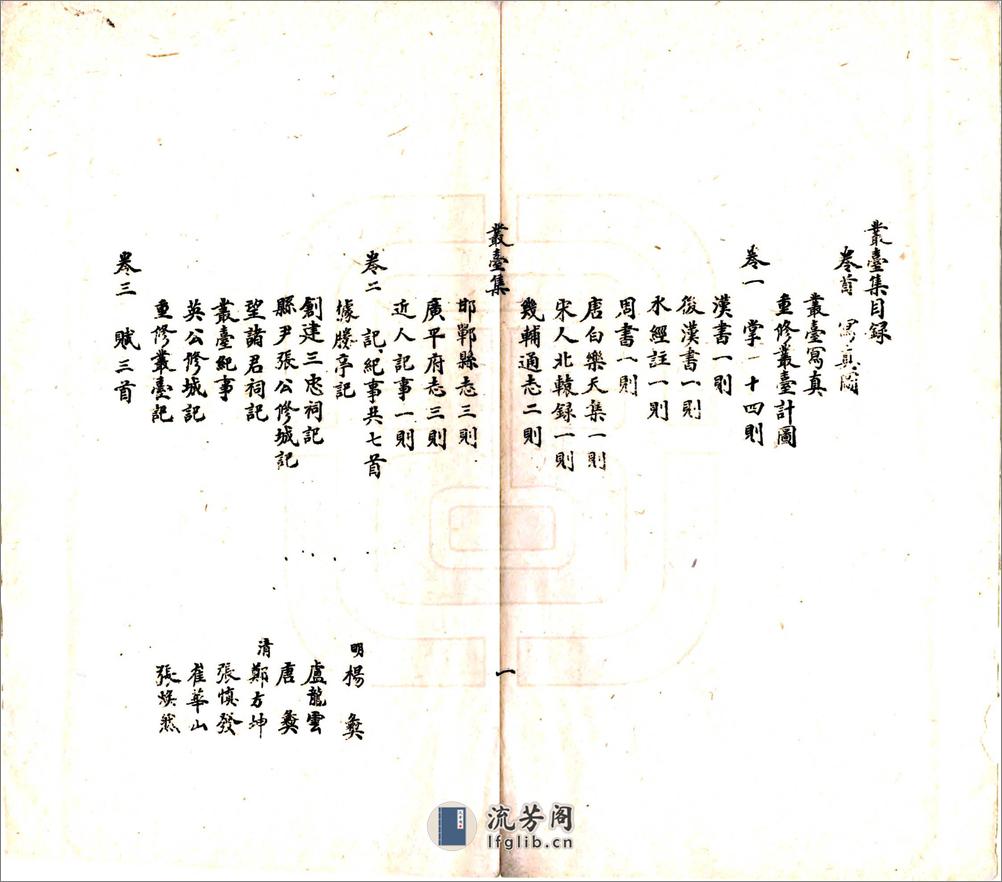 叢臺集目録
卷首 寫真圖
叢臺寫真
重修叢臺計圖
卷一 掌一十四則
漢書一則
後漢書一則
水經註一則
周書一則
唐白樂天集一則
宋人北轅録一則
畿輔通志二則
叢臺集 一
邯鄲縣志三則
廣平府志三則
近人記事一則
卷二 記、紀事共七首
據勝亭記 明 楊彝
創建三忠祠記 盧龍雲
縣尹張公修城記 唐彝
望諸君祠記 清 鄭方坤
叢臺紀事 張慎發
英公修城記 崔華山
重修叢臺記 張煥然
卷三 賦三首
流芳阁
lfglib.cn